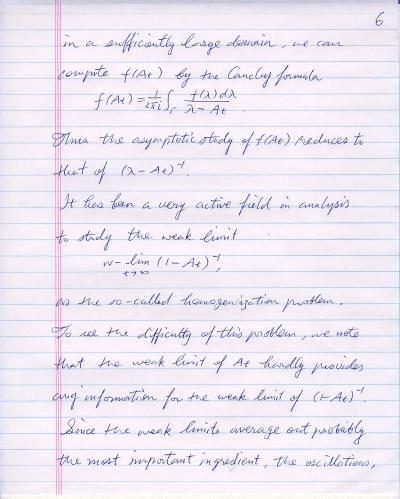 6
in a sufficiently large domain, we can
compute f(At) by the Cauchy formula
f(At) = 1/2πi ∫Γ f(λ)dλ / λ - At .
Thus the asymptotic study of f(At) reduces to
that of (λ - At)⁻¹.
It has been a very active field in analysis
to study the weak limit
w-lim t→∞ (1 - At)⁻¹,
as the so-called homogenization problem.
To see the difficulty of this problem, we note
that the weak limit of At hardly provides
any information for the weak limit of (1-At)⁻¹.
Since the weak limits average out probably
the most important ingredient, the oscillations,